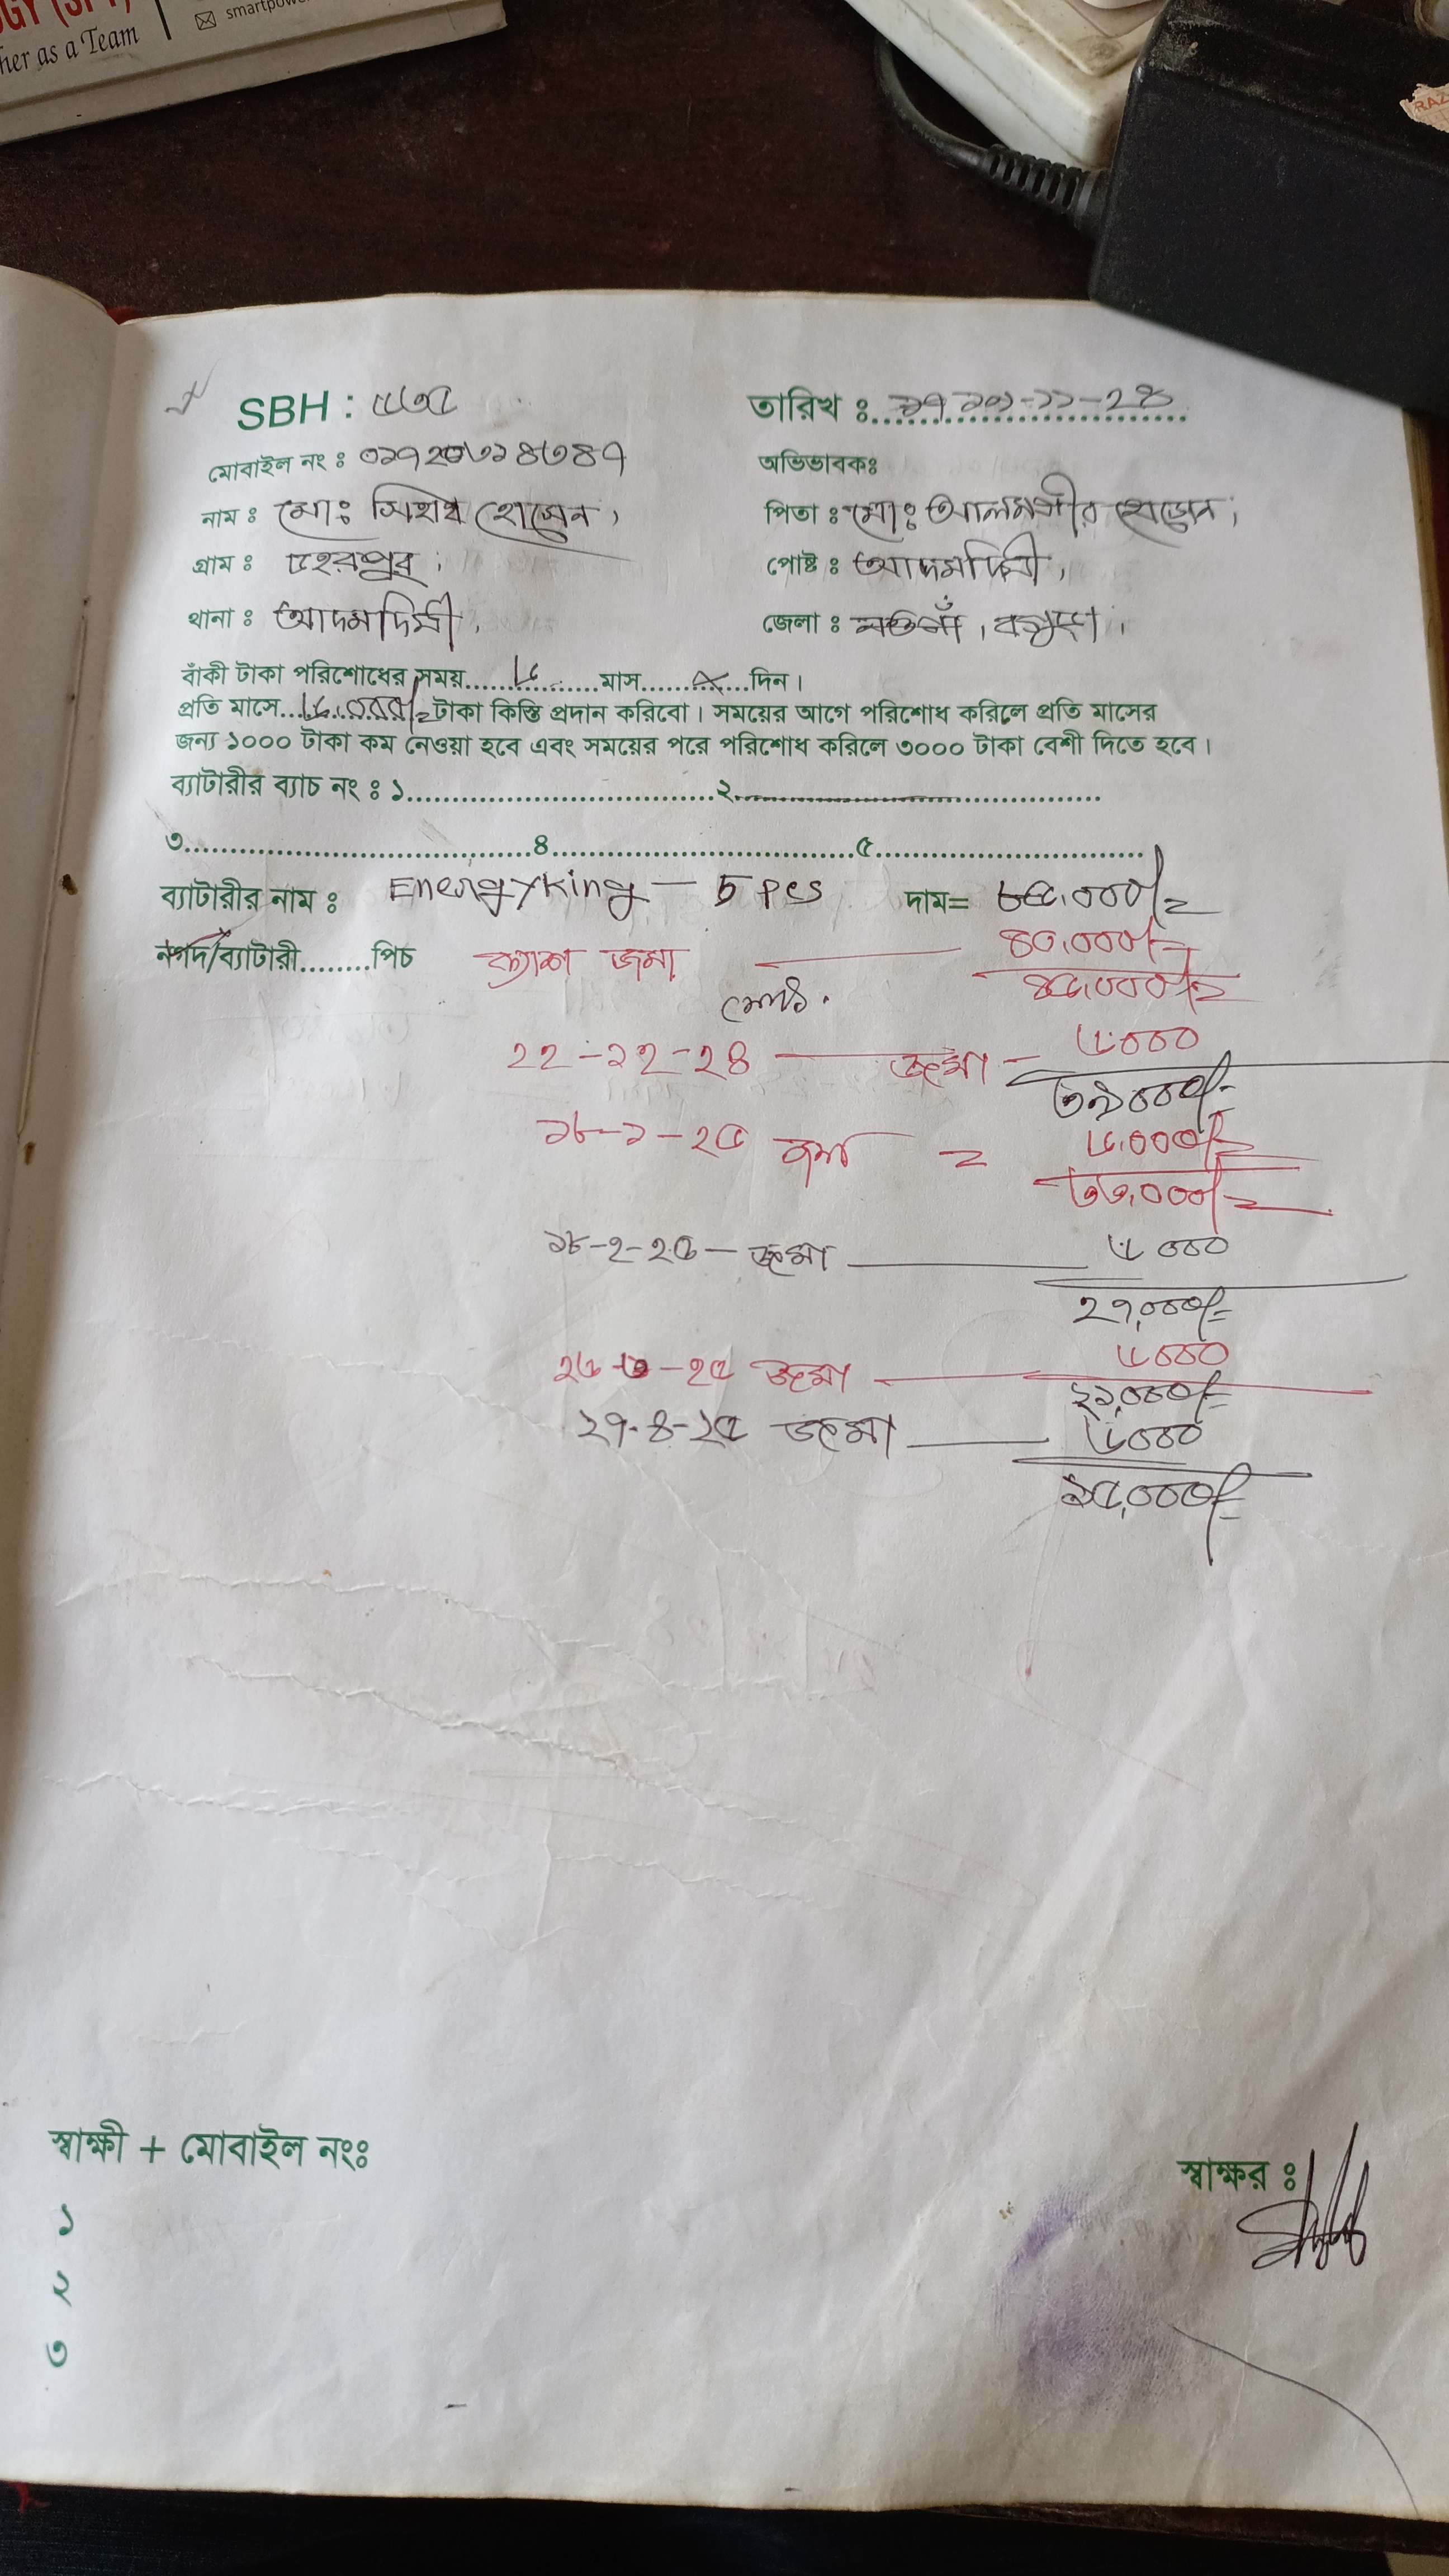 her as a Team
SBH : ৫৩৫
তারিখ ঃ ১৭-১১-২৪
মোবাইল নং ঃ
অভিভাবকঃ
নাম ঃ মোঃ সিহাব হোসেন,
পিতা ঃ মোঃ আলমগীর হোসেন,
গ্রাম ঃ
পোষ্ট ঃ আদমদিঘী,
থানা ঃ আদমদিঘী,
জেলা ঃ বগুড়া।
বাঁকী টাকা পরিশোধের সময়.......৮.......মাস.......×.......দিন।
প্রতি মাসে...৬,০০০/=টাকা কিস্তি প্রদান করিবো। সময়ের আগে পরিশোধ করিলে প্রতি মাসের
জন্য ১০০০ টাকা কম নেওয়া হবে এবং সময়ের পরে পরিশোধ করিলে ৩০০০ টাকা বেশী দিতে হবে।
ব্যাটারীর ব্যাচ নং ঃ ১..................................২..................................
৩..................................৪..................................৫..................................
ব্যাটারীর নাম ঃ Energyking — 5 pcs দাম= ৮৫,০০০/=
নগদ/ব্যাটারী........পিচ ক্যাশ জমা — ৪০,০০০/=
৪৫,০০০/=
২২-১২-২৪ — জমা — ৬০০০
৩৯০০০/=
১৮-১-২৫ জমা = ৬,০০০/=
৩৩,০০০/=
১৮-২-২৫ — জমা — ৬০০০
২৭,০০০/=
২৬-৩-২৫ জমা — ৬০০০
২১,০০০/=
২৭-৪-২৫ জমা — ৬০০০
১৫,০০০/=
স্বাক্ষী + মোবাইল নংঃ
স্বাক্ষর ঃ
১
২
৩